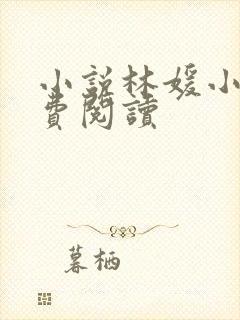 小說林媛小
費閱讀
暮栖